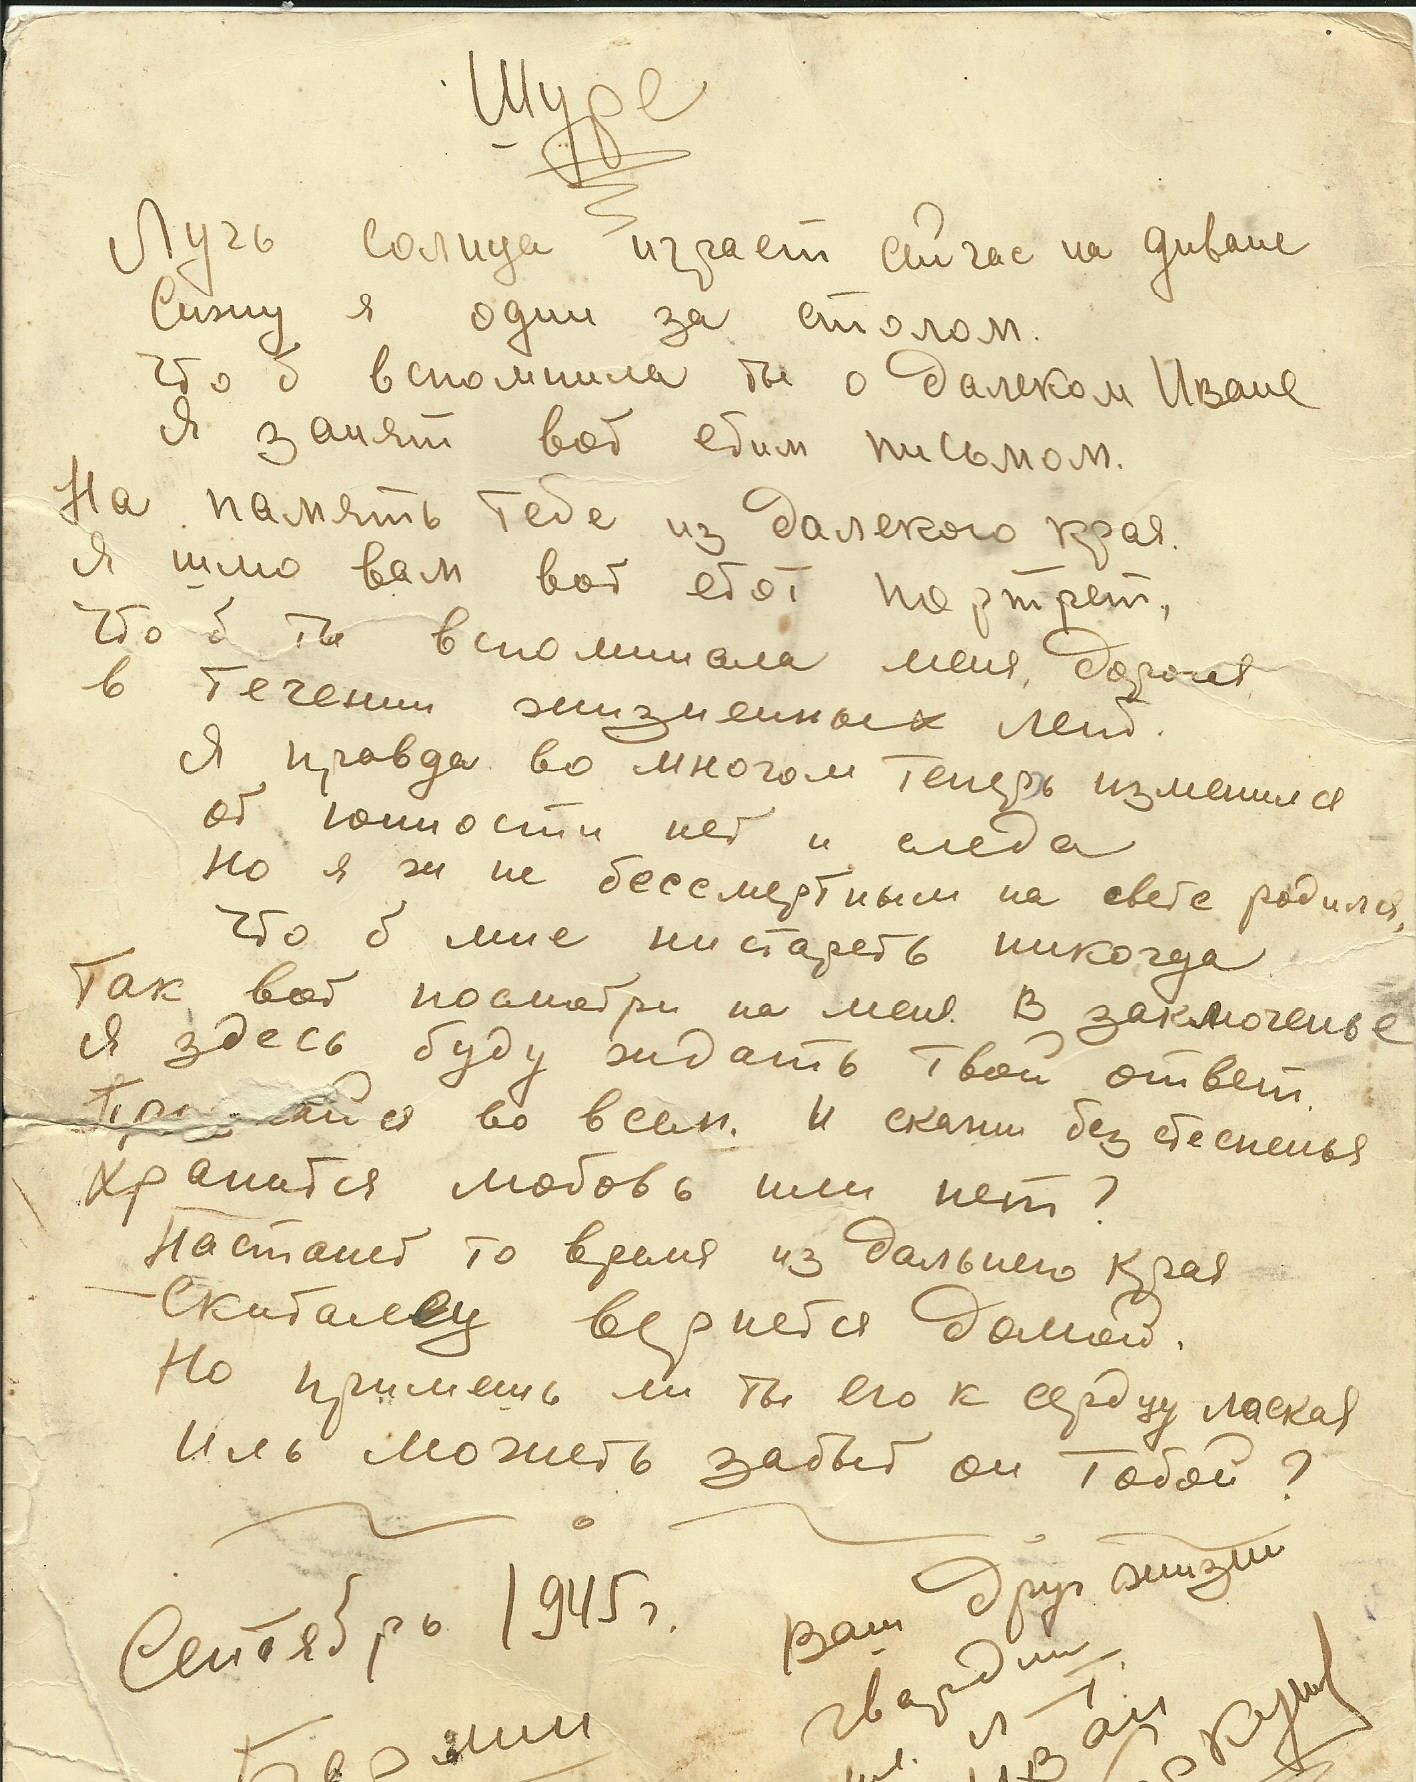 Шуре
Лучь солнца играет сейчас на диване
Сижу я один за столом.
Что б вспомнила ты о далеком Иване
Я занят вот етим письмом.
На память тебе из далекого края.
Я шлю вам вот етот портрет,
Что б ты вспоминала меня, дорогая,
в течении жизненных лет.
Я правда во многом теперь изменился
от юности нет и следа
Но я ж не бессмертным на свете родился,
Что б мне нистареть никогда
Так вот посмотри на меня. В заключенье
Я здесь буду ждать твой ответ.
во всем. И скажи без стесненья
Хранится любовь или нет?
Настанет то время из дальнего края
Скиталец вернется домой.
Но примешь ли ты его к сердцу лаская
Иль можеть забыт он тобой?
Сентябрь 1945 г.
Ваш друг жизни
гвардии
Берлин
Л-Т.
Иван